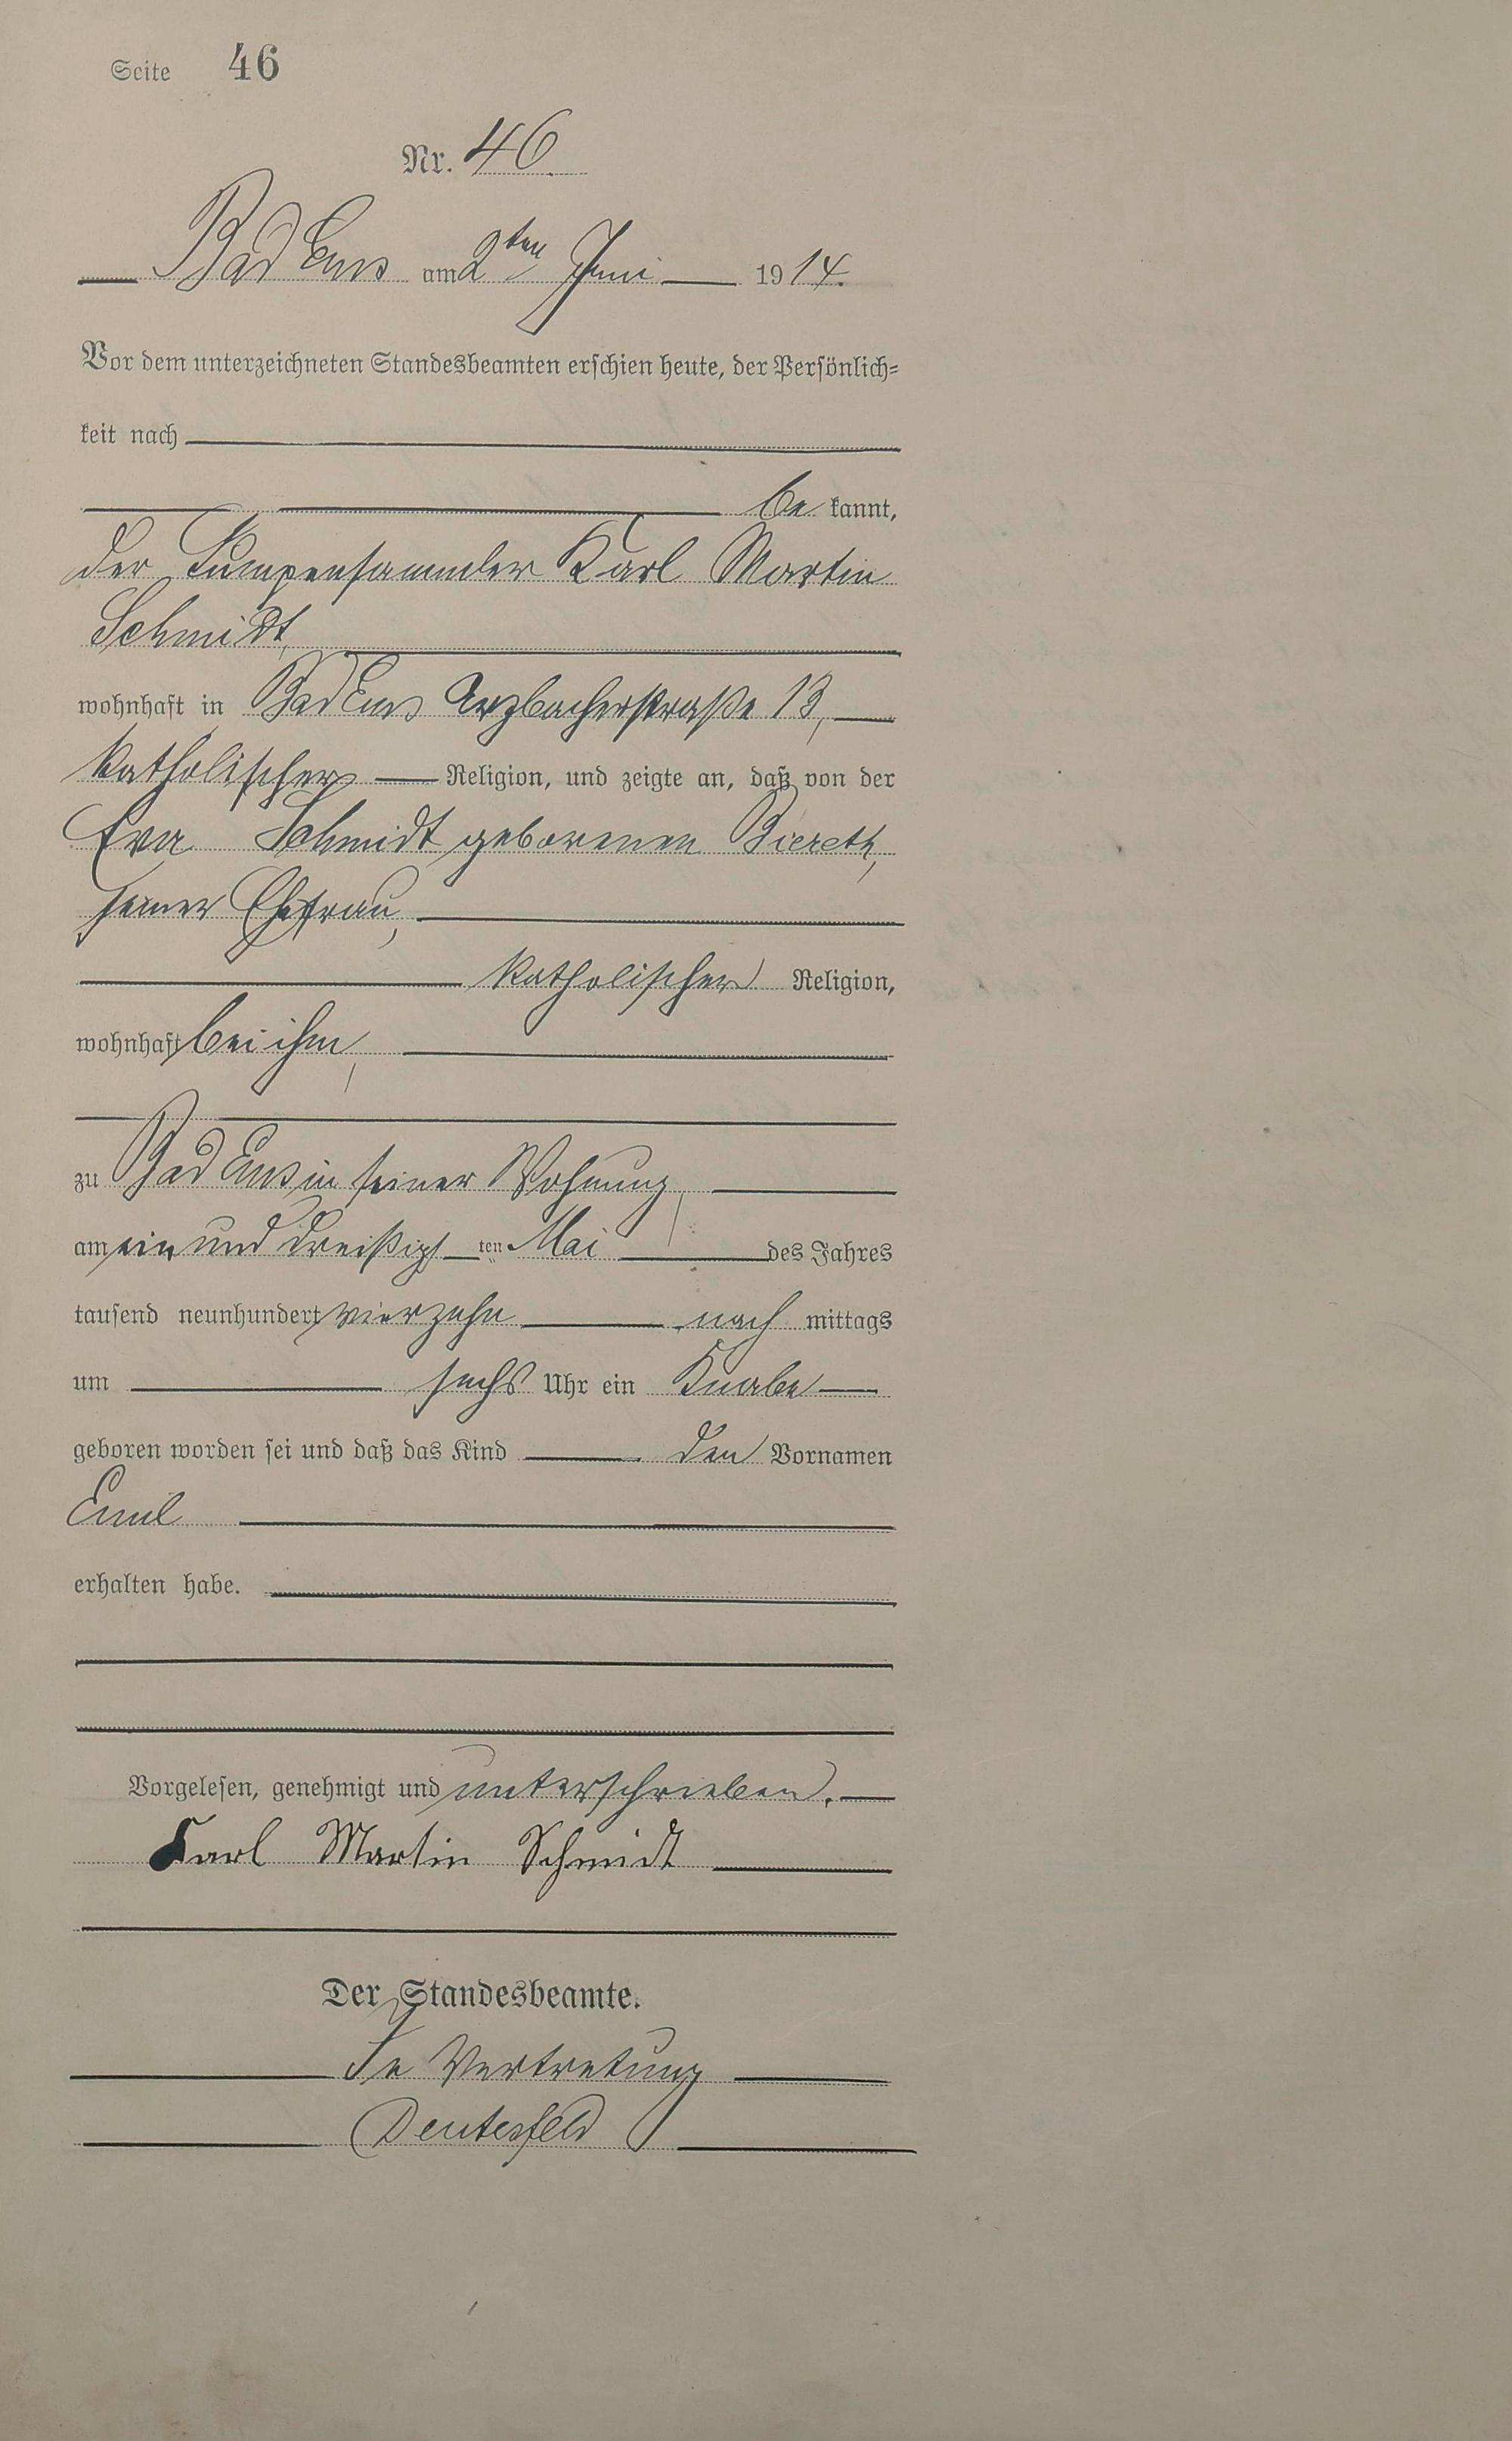 Seite 46
Nr. 46
Bad Ems am 2ten Juni 1914.
Vor dem unterzeichneten Standesbeamten erschien heute, der Persönlich-
keit nach
be kannt,
der Lumpensammler Karl Martin
Schmidt,
wohnhaft in Bad Ems Arzbacherstraße 13,
katholischer Religion, und zeigte an, daß von der
Eva Schmidt geborenen Biereth,
seiner Ehefrau,
katholischer Religion,
wohnhaft bei ihm,
zu Bad Ems in seiner Wohnung,
am ein und dreißigsten Mai des Jahres
tausend neunhundert vierzehn nach mittags
um sechs Uhr ein Knabe
geboren worden sei und daß das Kind den Vornamen
Emil
erhalten habe.
Vorgelesen, genehmigt und unterschrieben.
Karl Martin Schmidt
Der Standesbeamte.
In Vertretung
Deutesfeld